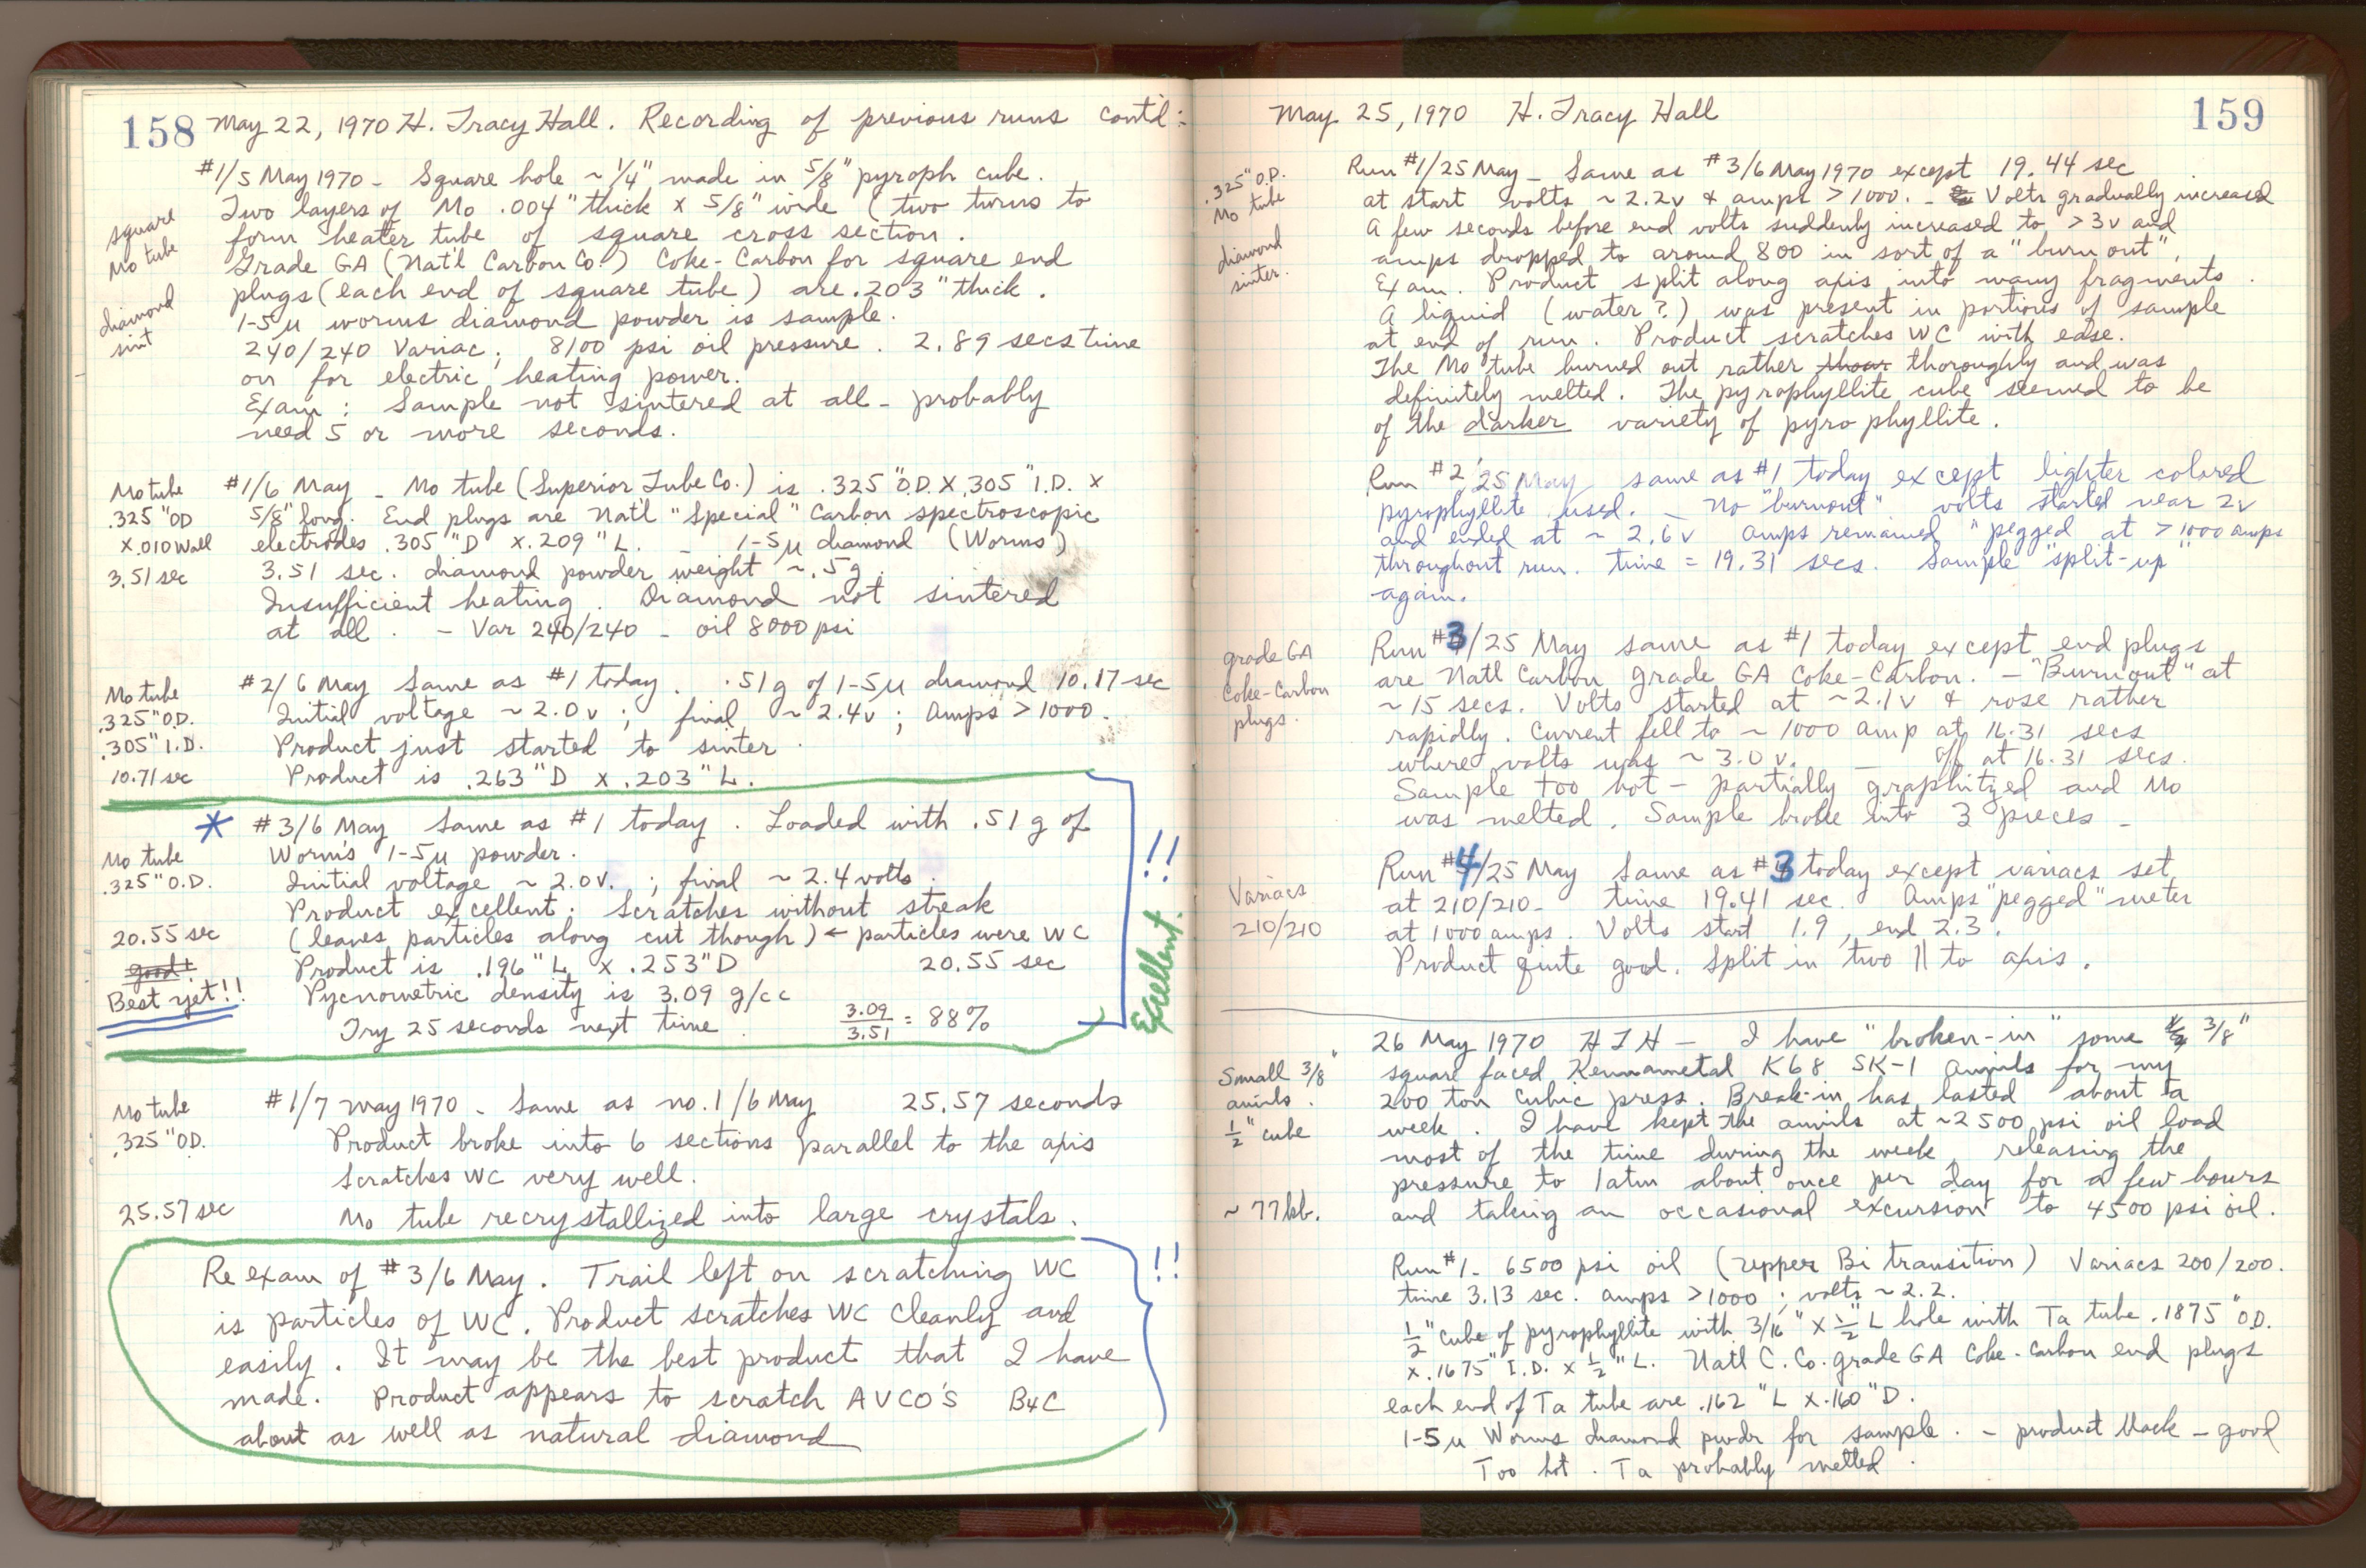 158 May 22, 1970 H. Tracy Hall. Recording of previous runs cont'd:
#1/5 May 1970 - Square hole ~ 1/4" made in 5/8" pyroph cube.
Two layers of Mo .004" thick x 5/8" wide (two turns to
form heater tube of square cross section.
Grade GA (Nat'l Carbon Co.) Coke-Carbon for square end
plugs (each end of square tube) are .203" thick.
1-5µ worms diamond powder is sample.
240/240 Variac; 8100 psi oil pressure. 2.89 secs time
on for electric heating power.
Exam: Sample not sintered at all - probably
need 5 or more seconds.
square
Mo tube
diamond
sint
#1/6 May - Mo tube (Superior Tube Co.) is .325" O.D. X .305" I.D. x
5/8" long. End plugs are Nat'l "Special" Carbon spectroscopic
electrodes .305"D x .209"L. - 1-5µ diamond (Worms)
3.51 sec. diamond powder weight ~ .5g.
Insufficient heating. Diamond not sintered
at all. - Var 240/240 - oil 8000 psi
Mo tube
.325"OD
x .010 Wall
3.51 sec
#2/6 May Same as #1 today. .51g of 1-5µ diamond 10.17 sec
Initial voltage ~ 2.0v; final ~ 2.4v; Amps > 1000.
Product just started to sinter.
Product is .263"D x .203"L.
Mo tube
.325"O.D.
.305"I.D.
10.71 sec
* #3/6 May Same as #1 today. Loaded with .51 g of
Worms 1-5µ powder.
Initial voltage ~ 2.0v.; final ~ 2.4 volts.
Product excellent: Scratches without streak
(leaves particles along cut though) ← particles were WC
Product is .196"L x .253"D 20.55 sec
Pycnometric density is 3.09 g/cc
Try 25 seconds next time. 3.09/3.51 = 88%
Mo tube
.325"O.D.
20.55 sec
good!
Best yet!!
!!
Excellent.
#1/7 May 1970 - Same as no. 1/6 May 25.57 seconds
Product broke into 6 sections parallel to the axis
Scratches WC very well.
Mo tube recrystallized into large crystals.
Mo tube
.325"OD.
25.57 sec
Re exam of #3/6 May. Trail left on scratching WC
is particles of WC. Product scratches WC cleanly and
easily. It may be the best product that I have
made. Product appears to scratch AVCO'S B4C
about as well as natural diamond
!!
May 25, 1970 H. Tracy Hall 159
Run #1/25 May - Same as #3/6 May 1970 except 19.44 sec
at start volts ~ 2.2v & amps > 1000. - Volts gradually increased
A few seconds before end volts suddenly increased to > 3v and
amps dropped to around 800 in sort of a "burn out".
Exam. Product split along axis into many fragments.
A liquid (water?) was present in portions of sample
at end of run. Product scratches WC with ease.
The Mo tube burned out rather thoroughly and was
definitely melted. The pyrophyllite cube seemed to be
of the darker variety of pyrophyllite.
.325" O.D.
Mo tube
diamond
sinter.
Run #2/25 May same as #1 today except lighter colored
pyrophyllite used. - No "burnout". volts started near 2v
and ended at ~ 2.6v Amps remained "pegged at > 1000 amps
throughout run. time = 19.31 secs. Sample "split-up"
again.
Run #3/25 May same as #1 today except end plugs
are Natl Carbon grade GA Coke-Carbon. - "Burnout" at
~ 15 secs. Volts started at ~2.1v & rose rather
rapidly. Current fell to ~ 1000 amp at 16.31 secs
where volts was ~ 3.0 v. - off at 16.31 secs.
Sample too hot - partially graphitized and Mo
was melted. Sample broke into 3 pieces -
grade GA
Coke-Carbon
plugs.
Run #4/25 May Same as #3 today except variacs set
at 210/210- time 19.41 sec. Amps "pegged" meter
at 1000 amps. Volts start 1.9, end 2.3.
Product quite good. Split in two || to axis.
Variacs
210/210
26 May 1970 HTH - I have "broken-in" some 3/8"
square faced Kennametal K68 SK-1 anvils for my
200 ton cubic press. Break-in has lasted about a
week. I have kept the anvils at ~2500 psi oil load
most of the time during the week, releasing the
pressure to 1atm about once per day for a few hours
and taking an occasional excursion to 4500 psi oil.
Small 3/8"
anvils.
1/2" cube
~ 77kb.
Run #1- 6500 psi oil (upper Bi transition) Variacs 200/200.
time 3.13 sec. amps > 1000; volts ~ 2.2.
1/2" cube of pyrophyllite with 3/16" x 1/2" L hole with Ta tube .1875" OD.
x .1675" I.D. x 1/2" L. Natl C. Co. grade GA Coke-Carbon end plugs
each end of Ta tube are .162" L x .160"D.
1-5µ Worms diamond powdr for sample. - product black - good
Too hot. Ta probably melted.